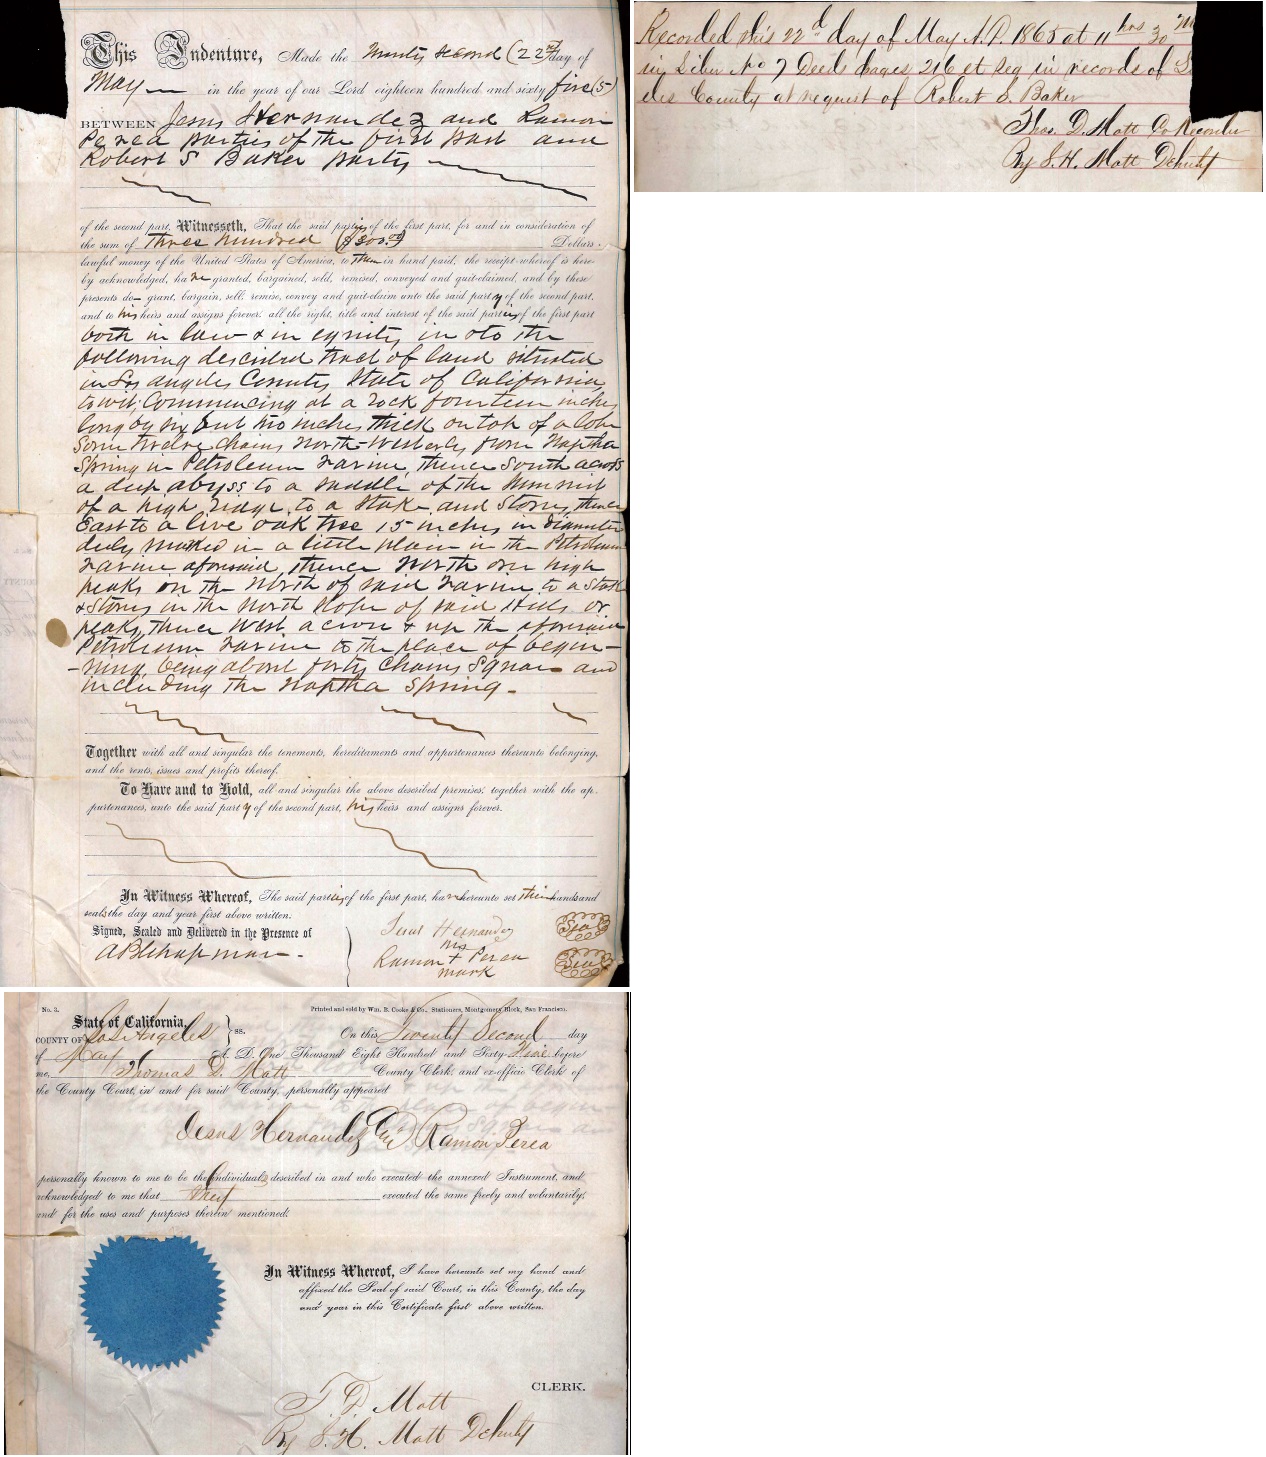 This Indenture, Made the Twenty second (22nd) day of
May in the year of our Lord eighteen hundred and sixty five (5)
BETWEEN Jesus Hernandez and Ramon
Perea parties of the first part and
Robert S Baker party
of the second part, Witnesseth, That the said parties of the first part, for and in consideration of
the sum of Three Hundred ($300.00) Dollars.
lawful money of the United States of America, to them in hand paid, the receipt whereof is here-
by acknowledged, have granted, bargained, sold, remised, conveyed and quit-claimed, and by these
presents do grant, bargain, sell, remise, convey and quit-claim unto the said party of the second part,
and to his heirs and assigns forever. all the right, title and interest of the said parties of the first part
both in law & in equity in & to the
following described tract of land situated
in Los Angeles County State of California
to wit; Commencing at a rock fourteen inches
long by six but two inches thick on top of a
some twelve chains North-Westerly from Naptha
Spring in Petroleum ravine, thence South across
a deep abyss to a saddle of the summit
of a high ridge to a Stake and Stones, thence
East to a live oak tree 15 inches in diameter
duly marked in a little plain in the Petroleum
ravine aforesaid, thence North over high
peaks on the North of said ravine to a Stake
& Stones in the North slope of said Hills or
peaks, thence West across & up the aforesaid
Petroleum ravine to the place of begin-
-ning, being about forty chains square and
including the Naptha Spring.
Together with all and singular the tenements, hereditaments and appurtenances thereunto belonging,
and the rents, issues and profits thereof.
To Have and to Hold, all and singular the above described premises. together with the ap-
purtenances, unto the said party of the second part, his heirs and assigns forever.
In Witness Whereof, The said parties of the first part, have hereunto set their hands and
seals the day and year first above written.
Signed, Sealed and Delivered in the Presence of
A B Chapman.
Jesus Hernandez Seal
his
Ramon + Perea Seal
mark
Recorded this 22d day of May A.D. 1865 at 11 hrs 30
in Liber No 7 Deeds pages 216 et Seq in records of
les County at request of Robert S. Baker
Thos. D. Mott Co Recorder
By S.H. Mott Deputy
No. 3. Printed and sold by Wm. B. Cooke & Co., Stationers, Montgomery Block, San Francisco.
State of California,
COUNTY OF Los Angeles } ss. On this Twenty Second day
of May A. D. One Thousand Eight Hundred and Sixty-Five before
me, Thomas D. Mott County Clerk, and ex-officio Clerk of
the County Court, in and for said County, personally appeared
Jesus Hernandez and Ramon Perea
personally known to me to be the individuals described in and who executed the annexed Instrument, and
acknowledged to me that they executed the same freely and voluntarily,
and for the uses and purposes therein mentioned.
In Witness Whereof, I have hereunto set my hand and
affixed the Seal of said Court, in this County, the day
and year in this Certificate first above written.
CLERK.
T D Mott
By S. H. Mott Deputy